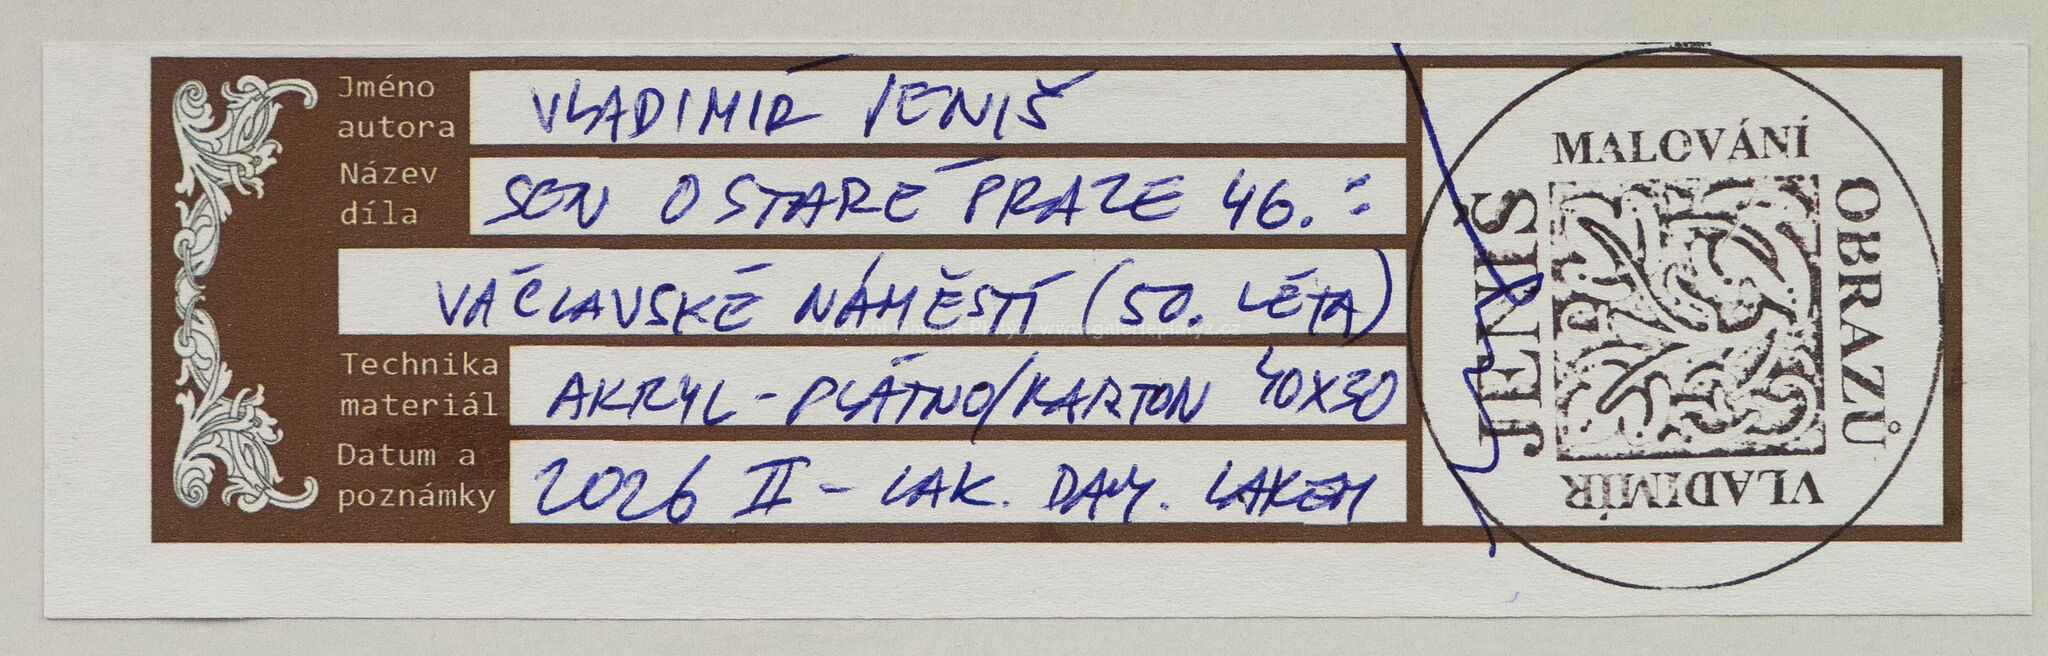 Jméno autora VLADIMÍR JENIŠ
Název díla SEN O STARÉ PRAZE 46.:
VÁCLAVSKÉ NÁMĚSTÍ (50. LÉTA)
Technika materiál AKRYL - PLÁTNO/KARTON 40X30
Datum a poznámky 2026 II - LAK. DAM. LAKEM
MALOVÁNÍ
OBRAZŮ
VLADIMÍR
JENIS
www.galerieplatyz.cz